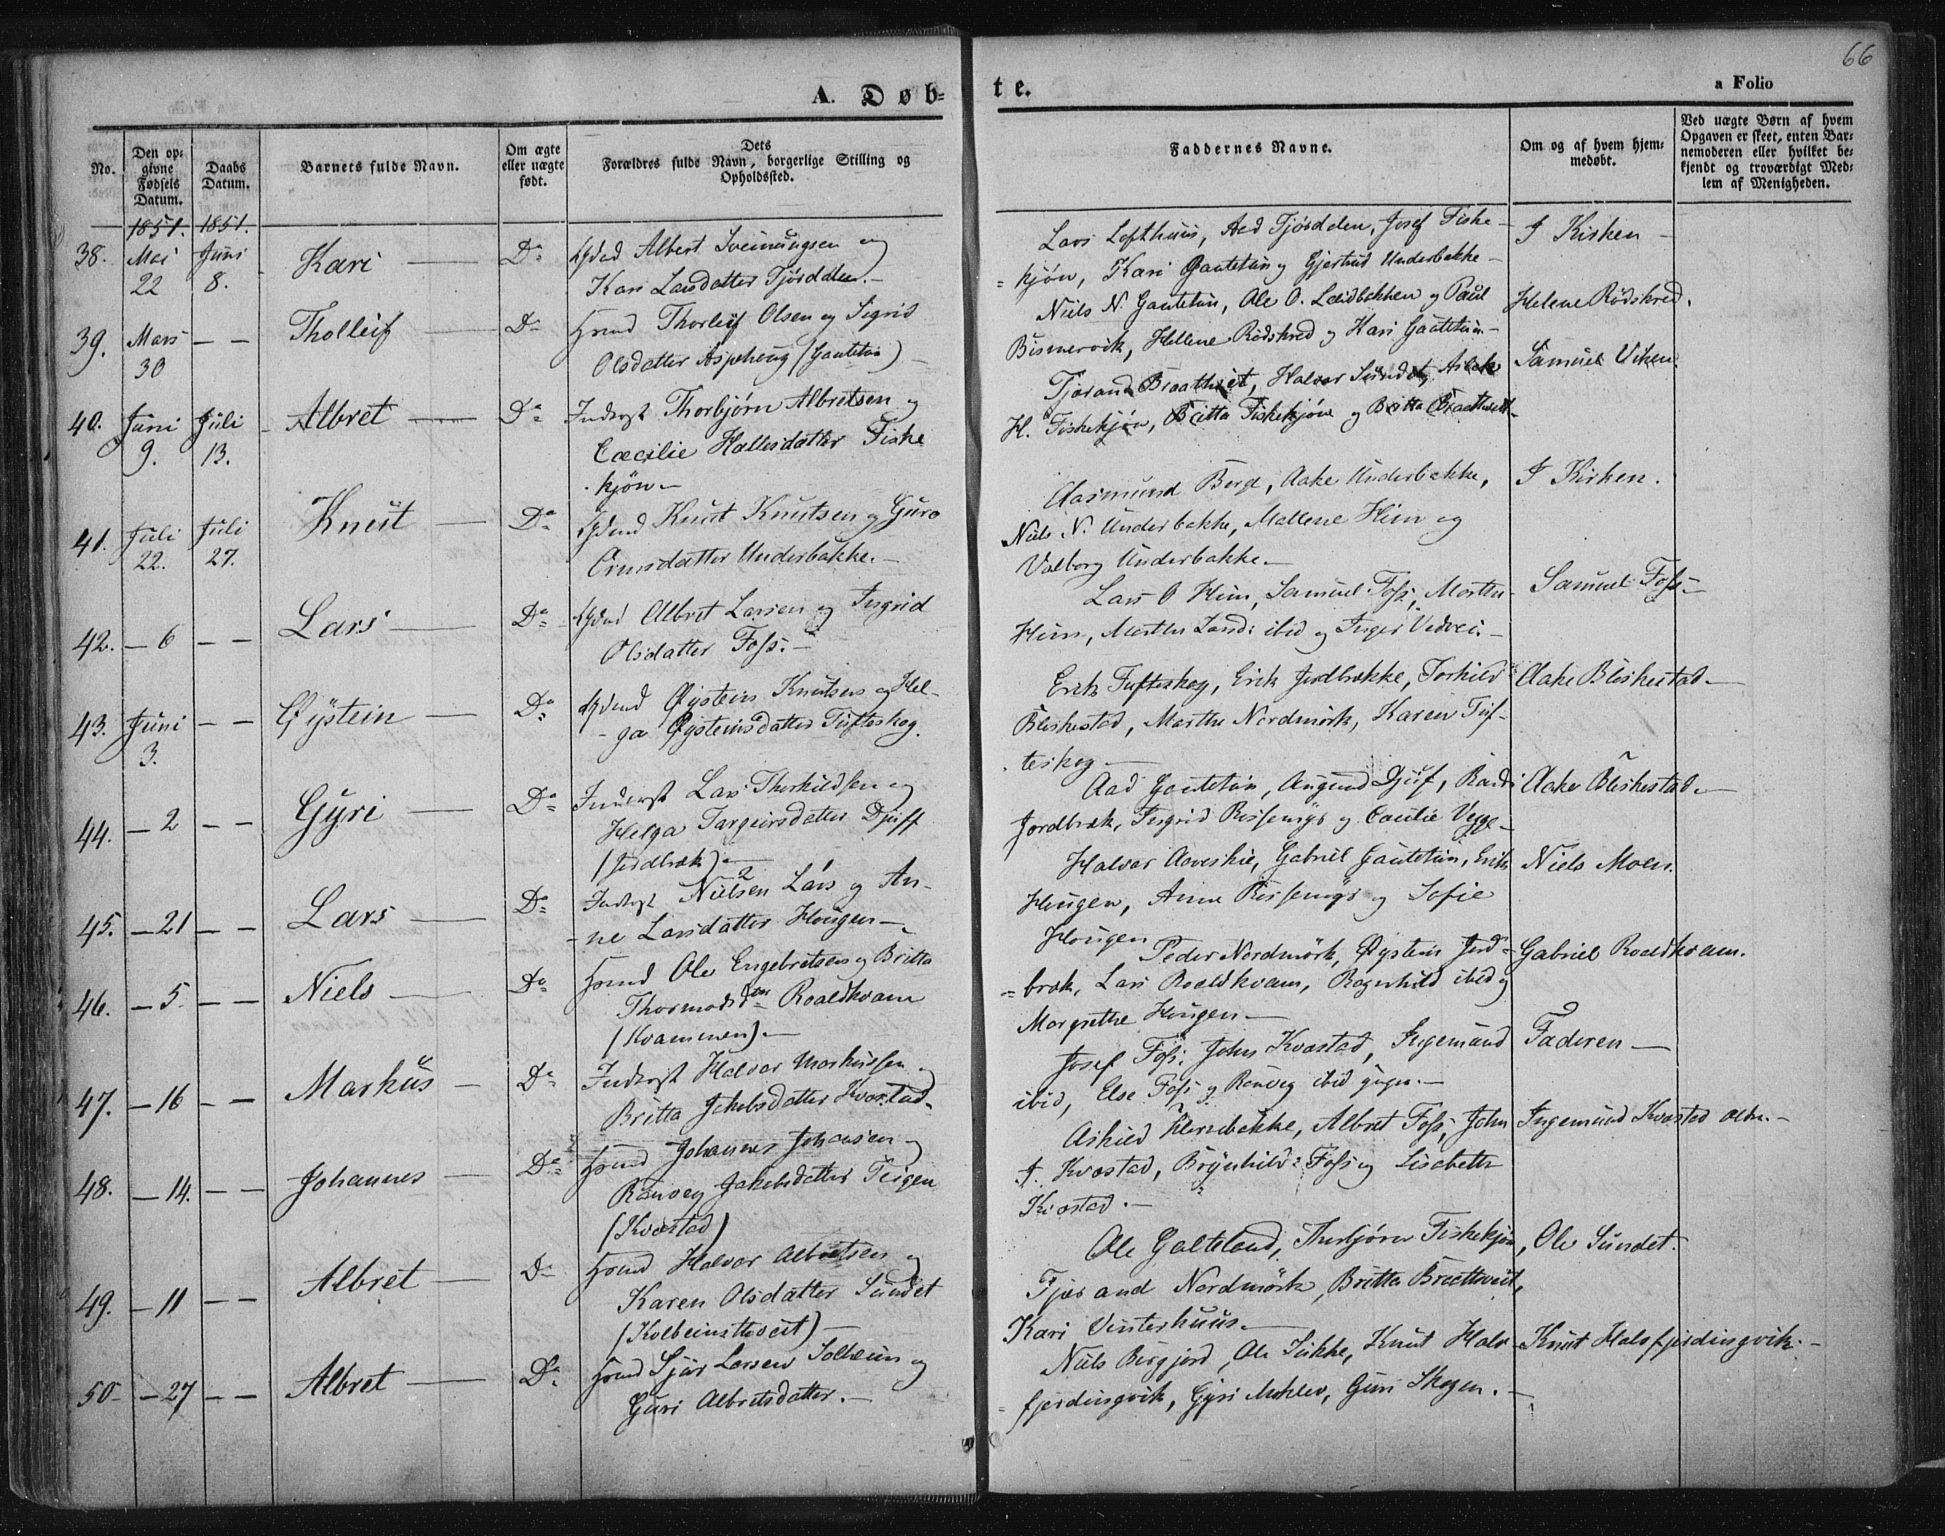 66
A. Døb-
te.
a Folio
No.
Den op-
givne
Fødsels
Datum.
Daabs
Datum.
Barnets fulde Navn.
Om ægte
eller uægte
født.
Dets
Forældres fulde Navn, borgerlige Stilling og
Opholdssted.
Faddernes Navne.
Om og af hvem hjem-
medøbt.
Ved uægte Børn af hvem
Opgaven er skeet, enten Bar-
nemoderen eller hvilket be-
kjendt og troværdigt Med-
lem af Menigheden.
1851. 1851.
38. Mai 22 Juni 8. Kari Do
Albert Sveinungsen og
Kari Larsdatter Tjørdalen.
Lars Lofthuus, Aad Tjørdalen, Josef Fiske-
kjøn, Kari Gautetun og Gjertrud Underbakke
I Kirken
39. Mars 30 — — Tholleif Do
Hmd Thorleif Olsen og Sigrid
Olsdatter Aspehaug (Gautetun)
Niels N. Gautetun, Ole O. Leidbakken og Paul
Bismervik, Hellene Rødskred og Kari Gautetun
Helene Rødskred.
40. Juni 9. Juli 13. Albret Do
Inderst Thorbjørn Albretsen og
Cæcilie Hallesdatter Fiske
kjøn
Tjøraand Braathveit, Halvor Sundet, Aslak
H. Fiskekjøn, Britta Fiskekjøn og Britta Braathveit
Samuel Viken
41. Juli 22. Juli 27. Knut Do
Knut Knutsen og Guro
Ormsdatter Underbakke.
Aasmund Berge, Aake Underbakke,
Niels N. Underbakke, Mallene Hiim og
Valborg Underbakke
I Kirken.
42. — 6 — — Lars Do
Albret Larsen og Ingrid
Olsdatter Foss.
Lars O Hiim, Samuel Foss, Morten
Hiim, Marthe Larsd: ibid og Inger Vedvei.
Samuel Foss
43. Juni 3. — — Øystein Do
Øystein Knutsen og Hel-
ga Øysteinsdatter Tufteskog.
Erik Tufteskog, Erik Jordbrække, Torkild
Bleskestad, Marthe Nordmørk, Karen Tuf-
teskog
Aake Bleskestad
44. — 2 — — Gyri Do
Inderst Lars Thorkildsen og
Helga Targeirsdatter Djuff
(Jordbræk)
Aad Gautetun, Augund Djuf, Randi
Jordbræk, Ingrid Rissemyr og Cæcilie Vegge
Aake Bleskestad
45. — 21 — — Lars Do
Inderst Nielsen Lars og An-
ne Larsdatter Hougen
Halvor Aareskie, Gabriel Gautetun, Erik
Hougen, Anne Rissemyr og Sofie
Hougen
Niels Moen.
46. — 5 — — Niels Do
Hmd Ole Engebretsen og Britta
Thormodsdtr Roaldkvam
(Kvammen)
Peder Nordmørk, Øystein Jord-
bræk, Lars Roaldkvam, Ragnhild ibid og
Margrethe Hougen
Gabriel Roaldkvam.
47. — 16 — — Markus Do
Inderst Halvor Markussen og
Britta Jakobsdatter Kvæstad
Josef Foss, John Kvæstad, Ingemund
ibid, Else Foss og Ranveg ibid
Faderen
48. — 14. — — Johannes Do
Hmd Johannes Johansen og
Ranveg Jakobsdatter Teigen
(Kvæstad)
Askild Hornebakke, Albret Foss, John
I. Kvæstad, Brynhild Foss og Lisabeth
Kvæstad.
Ingemund Kvæstad
49. — 11 — — Albret Do
Hmd Halvor Albretsen og
Karen Olsdatter Sundet
(Kolbeinstveit)
Ole Galteland, Thorbjørn Fiskekjøn,
Tjøraand Nordmørk, Britta Bratthveit,
Kari Vinterhuus.
Ole Sundet.
50 — 27 — — Albret Do
Hmd Sjur Larsen Solheim og
Guri Albretsdatter.
Niels Bergjord, Ole Sukke, Knut Hals-
fjerdingvik, Gyri Mehlen, Guri Skogen.
Knut Halsfjerdingvik.